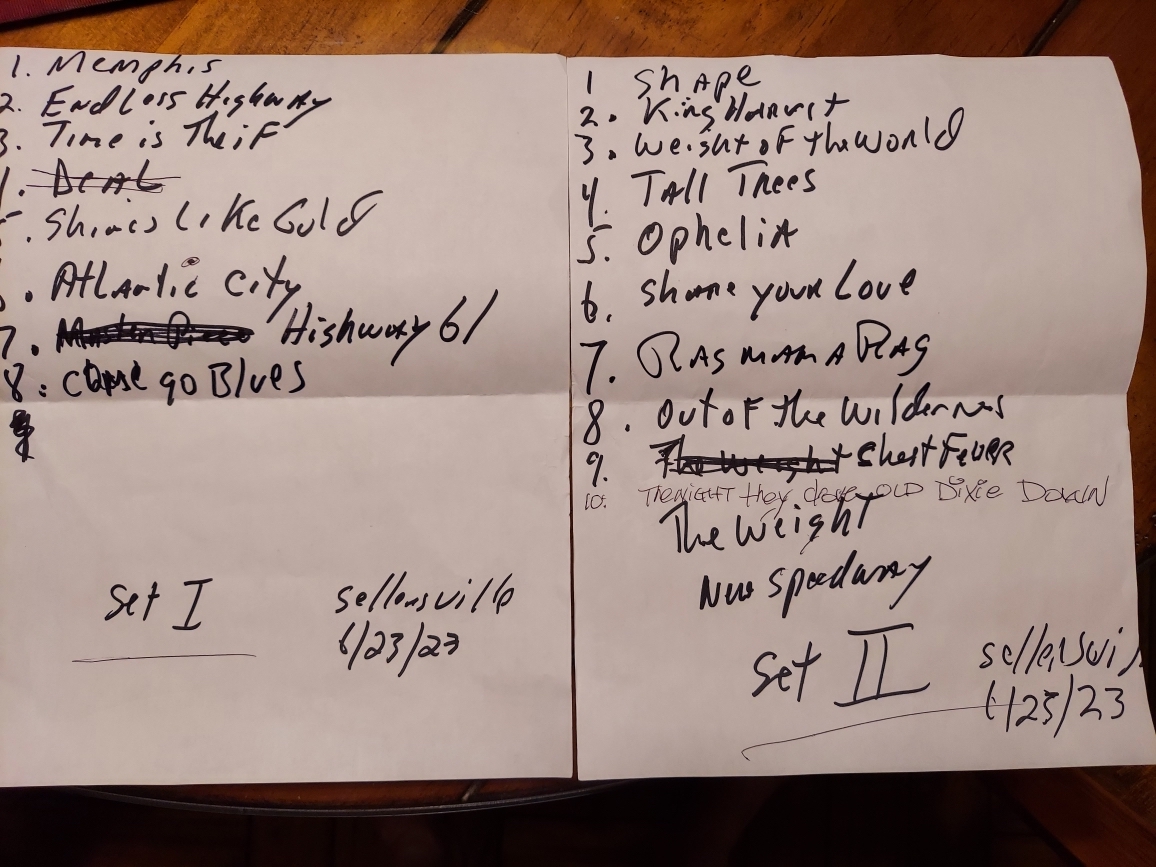 1. Memphis
2. Endless Highway
3. Time is Theif
4. Deal
5. Shines Like Gold
6. Atlantic City
7. Highway 61
8. go Blues
Set I
Sellersville
6/23/23
1 Shape
2. King Harvest
3. Weight of the World
4. Tall Trees
5. Ophelia
6. Share your Love
7. Rag mama Rag
8. Out of the Wilderness
9. The Weight Chest Fever
10. The NIGHT they drove OLD Dixie DOWN
The Weight
New Speedway
Set II
sellersvi
6/23/23